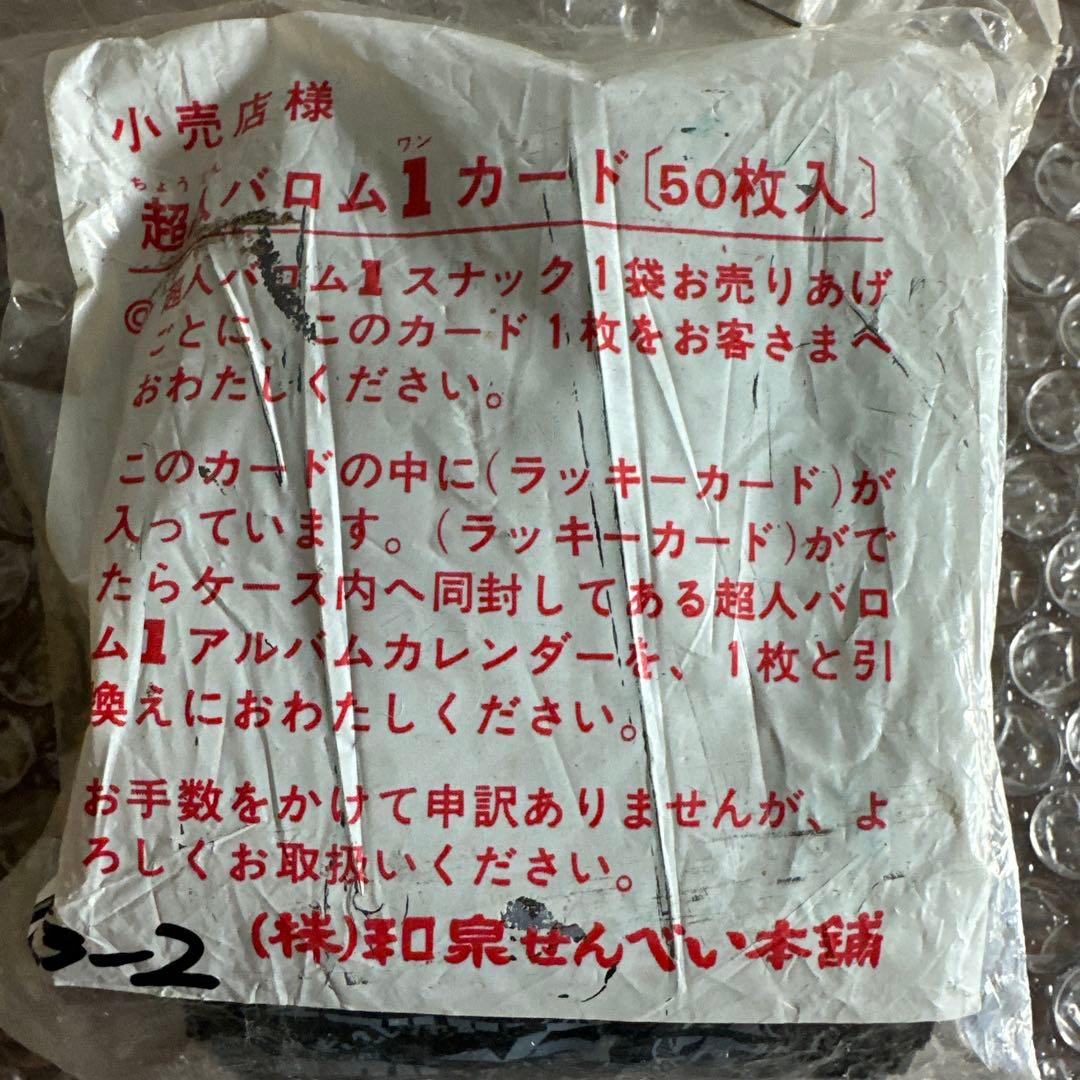 小売店様
ちょう
ワン
超人バロム1カード〔50枚入〕
◎超人バロム1スナック1袋お売りあげ
ごとに、このカード1枚をお客さまへ
おわたしください。
このカードの中に(ラッキーカード)が
入っています。(ラッキーカード)がで
たらケース内へ同封してある超人バロ
ム1アルバムカレンダーを、1枚と引
換えにおわたしください。
お手数をかけて申訳ありませんが、よ
ろしくお取扱いください。
(株)和泉せんべい本舗
3-2